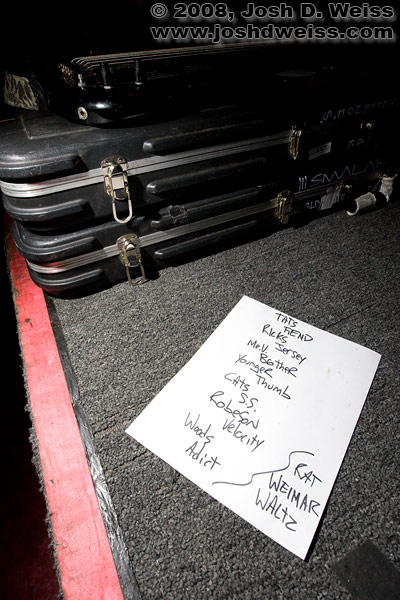 © 2008, Josh D. Weiss
www.joshdweiss.com
SMALL
TATS
FIEND
RICKS Jersey
Mr. V. Brother
Younger Thumb
CATS
S.S.
Robeson
Velocity
Woods
Adict
RAT
WEIMAR
WALTZ